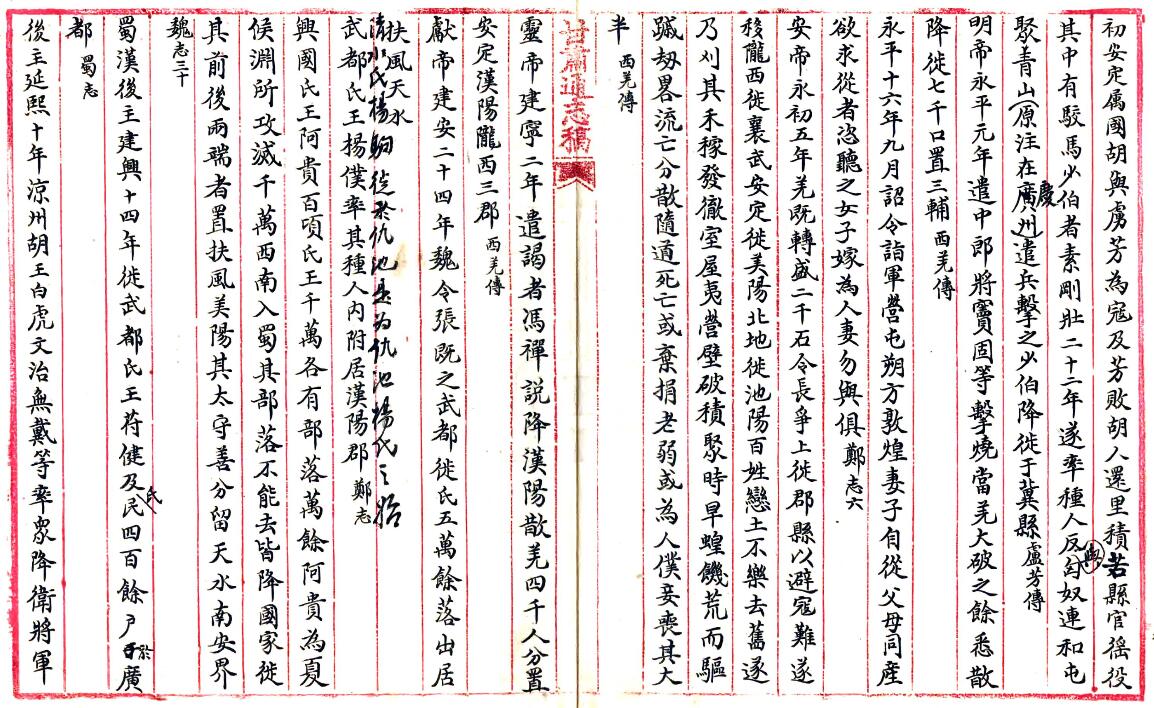 初安定属國胡與虜芳為寇及芳敗胡人還里積苦縣官徭役
其中有駮馬少伯者素剛壯二十二年遂率種人反與匈奴連和屯
聚青山原注在慶州遣兵擊之少伯降徙于冀縣盧芳傳
明帝永平元年遣中郎將竇固等擊燒當羌大破之餘悉散
降徙七千口置三輔西羌傳
永平十六年九月詔令詣軍營屯朔方敦煌妻子自從父母同産
欲求從者恣聽之女子嫁為人妻勿與俱鄭志六
安帝永初五年羌既轉盛二千石令長爭上徙郡縣以避寇難遂
移隴西徙襄武安定徙美陽北地徙池陽百姓戀土不樂去舊遂
乃刈其禾稼發徹室屋夷營壁破積聚時旱蝗饑荒而驅
蹴刼畧流亡分散隨道死亡或棄捐老弱或為人僕妾喪其大
半 西羌傳
甘肅通志稿
靈帝建寧二年遣謁者馮禪説降漢陽散羌四千人分置
安定漢陽隴西三郡西羌傳
獻帝建安二十四年魏令張既之武都徙氐五萬餘落出居
扶風天水
清水氐楊駒徙居仇池是為仇池楊氏之始
武都氐王楊僕率其種人內附居漢陽郡鄭志
興國氐王阿貴百頃氐王千萬各有部落萬餘阿貴為夏
侯淵所攻滅千萬西南入蜀其部落不能去皆降國家徙
其前後兩端者置扶風美陽其太守善分留天水南安界
魏志三十
蜀漢後主建興十四年徙武都氐王苻健及氐民四百餘户於廣
都 蜀志
後主延熙十年涼州胡王白虎文治無戴等率衆降衛將軍